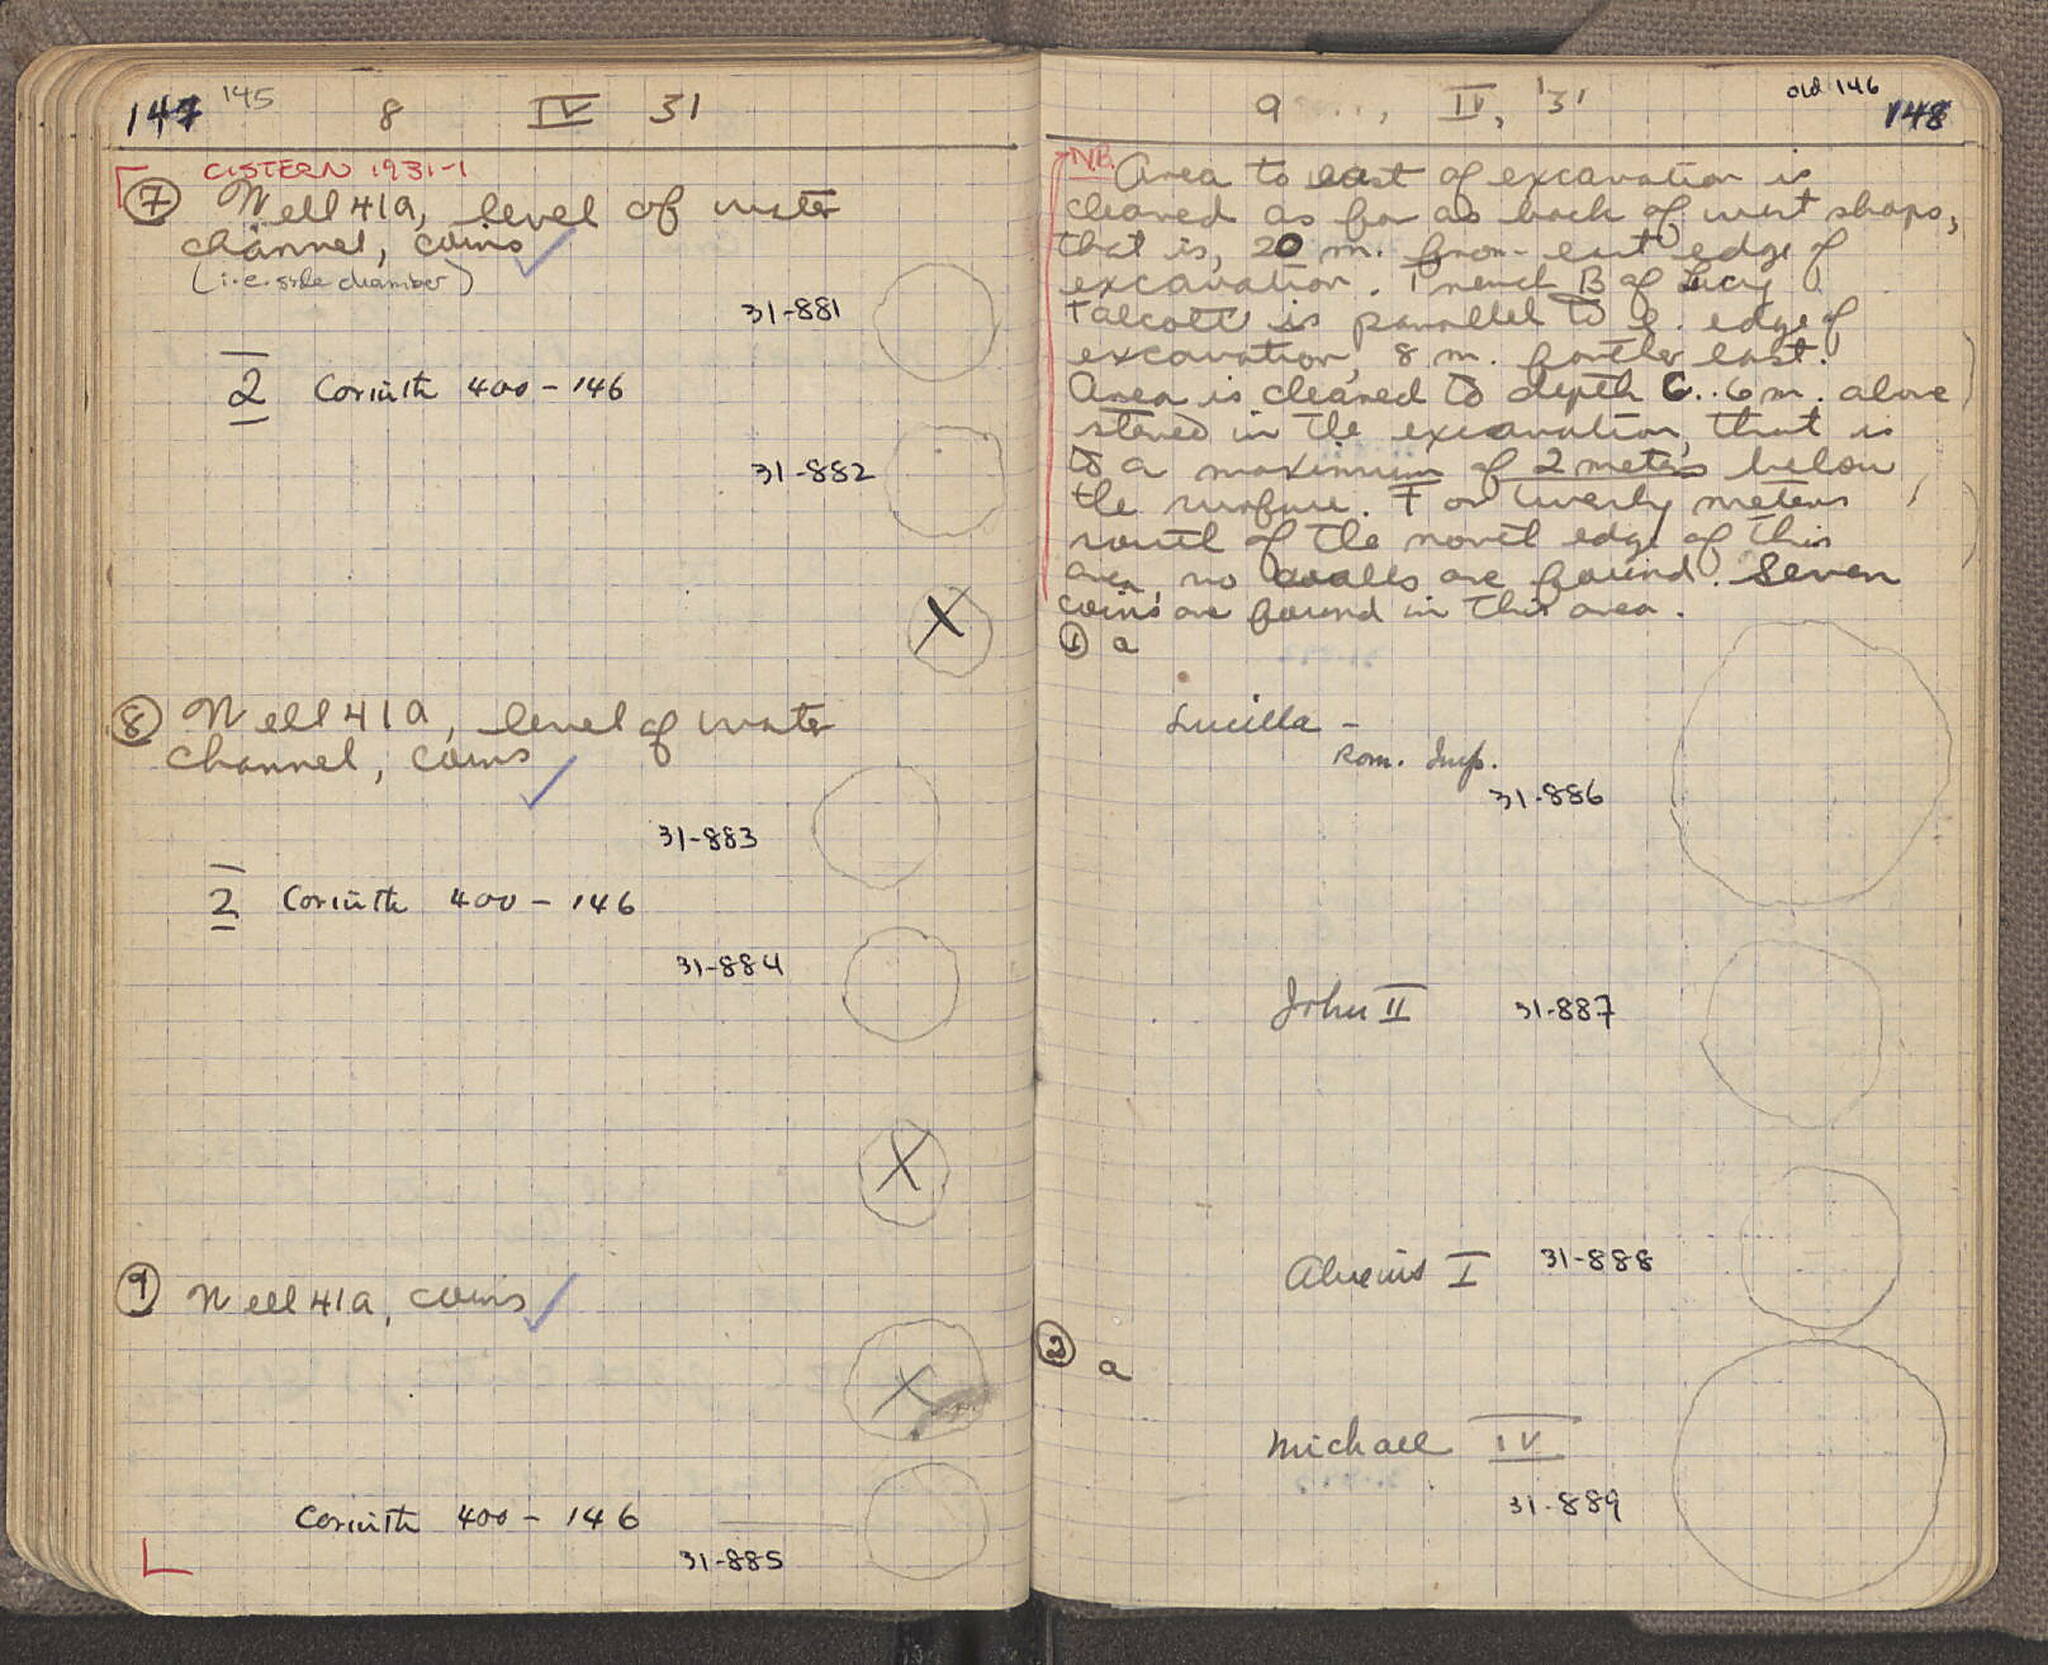 147 145 8 IV 31
CISTERN 1931-1
7 Well 41a, level of water
channel, coins
(i.e. side chamber)
31-881
2 Corinth 400-146
31-882
X
8 Well 41a, level of water
channel, coins
31-883
2 Corinth 400-146
31-884
X
9 Well 41a, coins
X
Corinth 400-146
31-885
9 IV, '31 old 146 148
N.B. Area to east of excavation is
cleared as far as back of west shops,
that is, 20 m. from east edge of
excavation. Trench B of Lucy
Talcott is parallel to e. edge of
excavation, 8 m. farther east.
Area is cleared to depth 6..6 m. above
stereo in the excavation, that is
to a maximum of 2 meters below
the surface. For twenty meters
south of the north edge of this
area, no walls are found. Seven
coins are found in this area.
1 a
Lucilla -
Rom. Imp.
31-886
John II 31-887
Alexius I 31-888
2 a
Michael IV
31-889